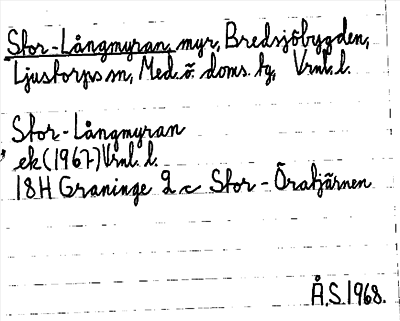 Stor-Långmyran myr, Bredsjöbygden,
Ljustorps sn, Med. ö. doms. tg, Vrnl. l.
Stor-Långmyran
ek (1967) Vrnl. l.
18H Graninge 2 c Stor-Öratjärnen
Å.S. 1968.